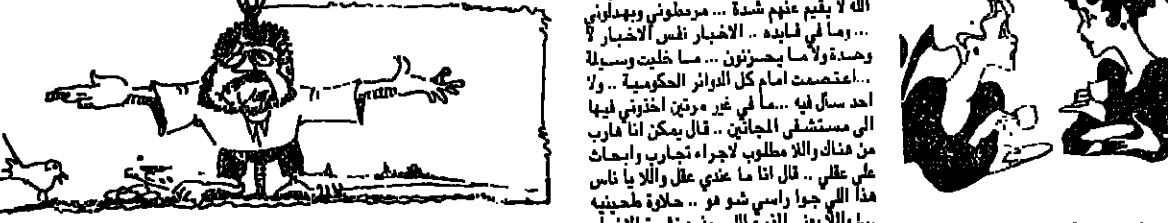 الله لا يقيم عنهم شدة ... مرمطوني وبهدلوني
... وما في فايده .. الاخبار نفس الاخبار لا
وحدة ولا ما يحزنون ... ما خليت وسيلة
.. اعتصمت امام كل الدوائر الحكومية .. ولا
احد سأل فيه ... ما في غير مرتين اخذوني فيها
الى مستشفى المجانين .. قال يمكن انا هارب
من هناك واللا مطلوب لاجراء تجارب وابحاث
على عقلي .. قال انا ما عندي عقل واللا يا ناس
هذا اللي جوا راسي شو هو .. حلاوة طحينيه